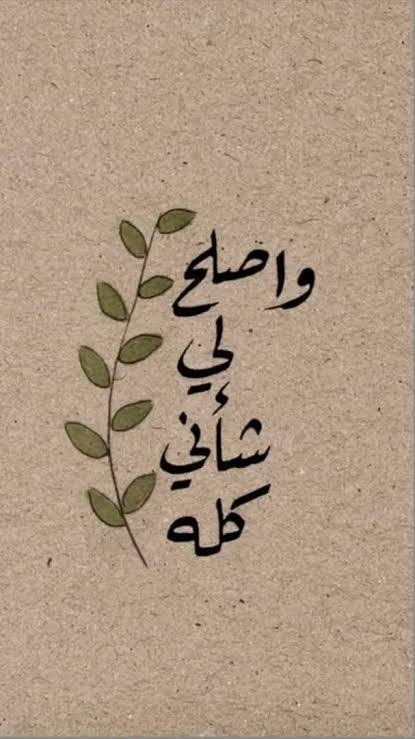 واصلح
لي
شأني
كله